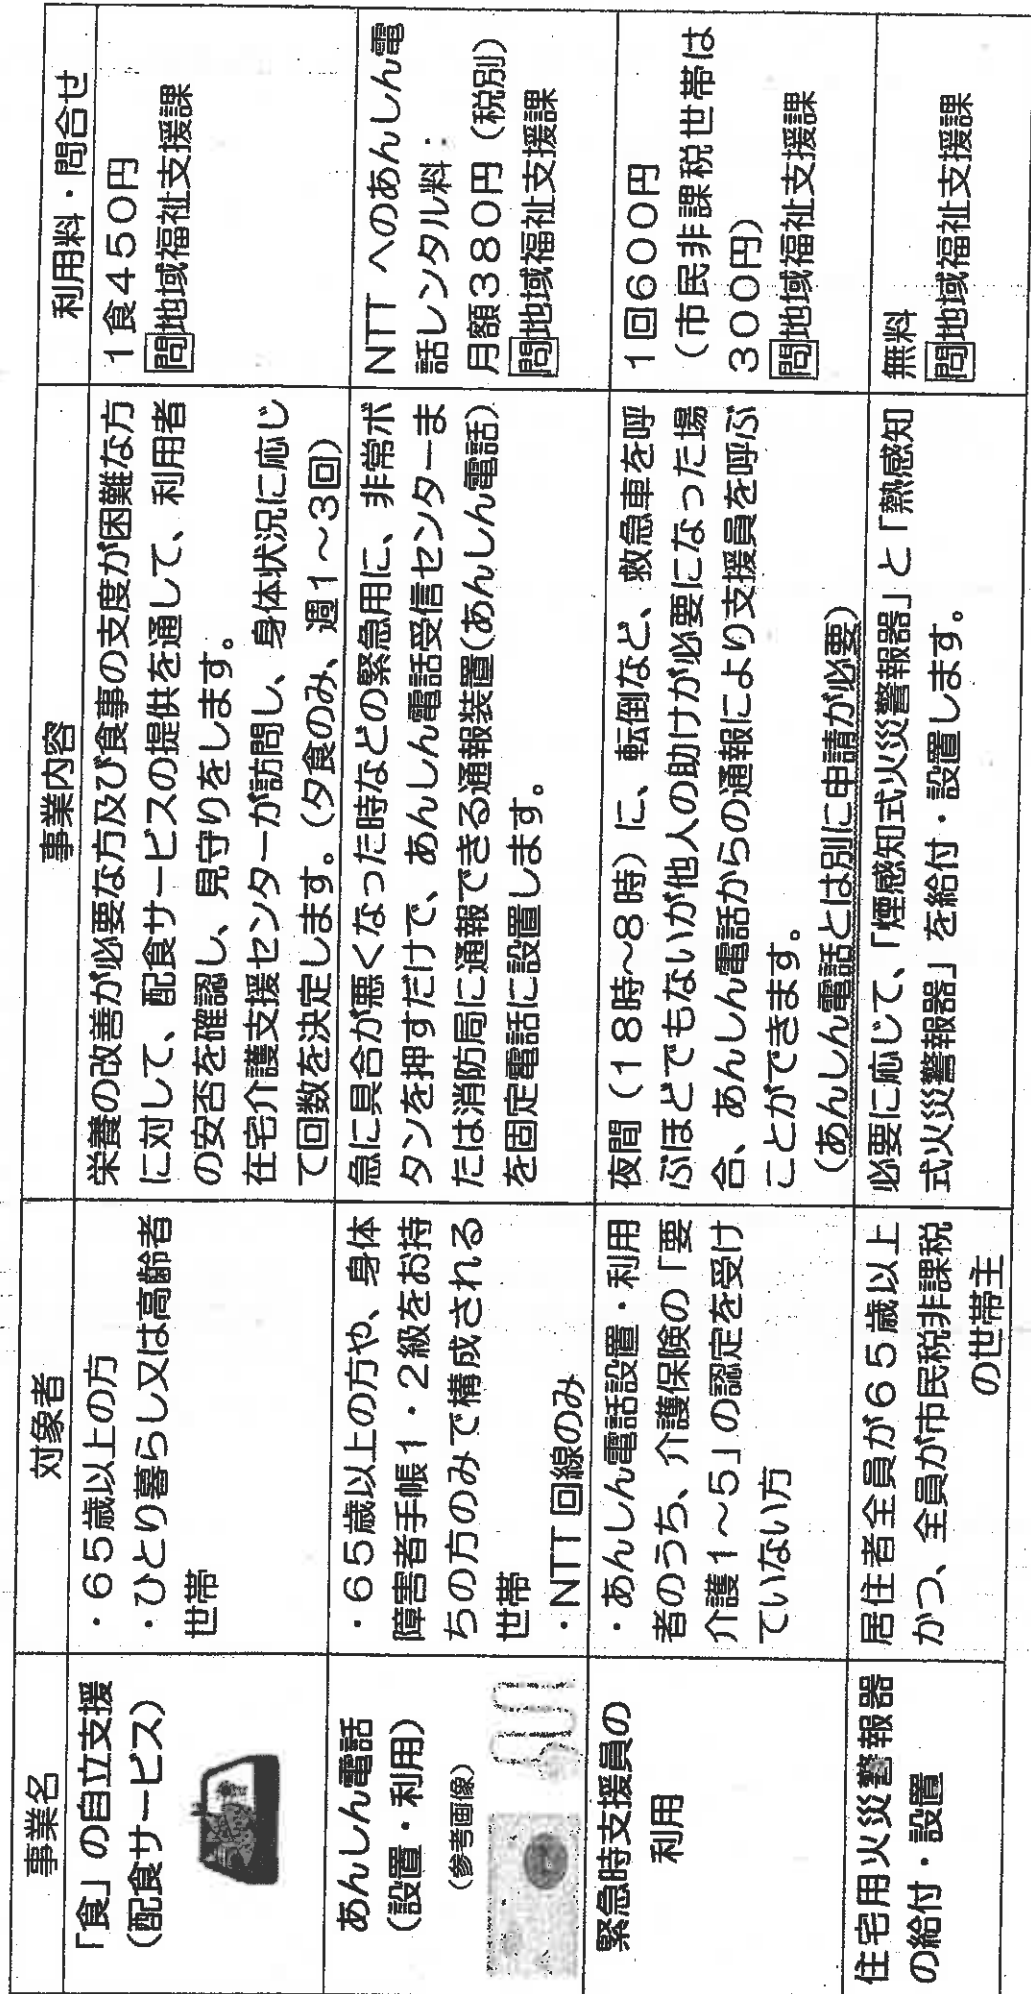 事業名
対象者
事業内容
利用料・問合せ
「食」の自立支援
(配食サービス)
・65歳以上の方
・ひとり暮らし又は高齢者
世帯
栄養の改善が必要な方及び食事の支度が困難な方
に対して、配食サービスの提供を通して、利用者
の安否を確認し、見守りをします。
在宅介護支援センターが訪問し、身体状況に応じ
て回数を決定します。(夕食のみ、週1~3回)
1食450円
問地域福祉支援課
あんしん電話
(設置・利用)
(参考画像)
・65歳以上の方や、身体
障害者手帳1・2級をお持
ちの方のみで構成される
世帯
・NTT回線のみ
急に具合が悪くなった時などの緊急用に、非常ボ
タンを押すだけで、あんしん電話受信センターま
たは消防局に通報できる通報装置(あんしん電話)
を固定電話に設置します。
NTTへのあんしん電
話レンタル料・
月額380円(税別)
問地域福祉支援課
緊急時支援員の
利用
・あんしん電話設置・利用
者のうち、介護保険の「要
介護1~5」の認定を受け
ていない方
夜間(18時~8時)に、転倒など、救急車を呼
ぶほどでもないが他人の助けが必要になった場
合、あんしん電話からの通報により支援員を呼ぶ
ことができます。
(あんしん電話とは別に申請が必要)
1回600円
(市民非課税世帯は
300円)
問地域福祉支援課
住宅用火災警報器
の給付・設置
居住者全員が65歳以上
かつ、全員が市民税非課税
の世帯主
必要に応じて、「煙感知式火災警報器」と「熱感知
式火災警報器」を給付・設置します。
無料
問地域福祉支援課